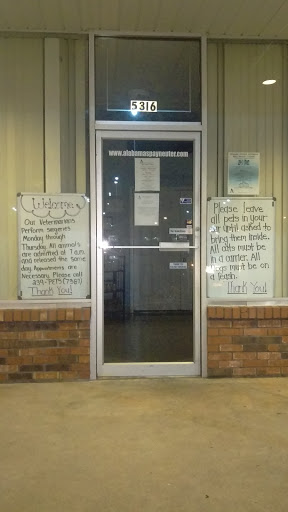 5316
www.alabamaspayneuter.com
Welcome
Our Veterinarians
Perform surgeries
Monday through
Thursday. All animals
are admitted at 7am
and released the same
day. Appointments are
Necessary. Please call
Thank You!
Please leave
all pets in your
car until asked to
bring them inside.
All cats must be
in a carrier. All
dogs must be on
a leash.
Thank You!